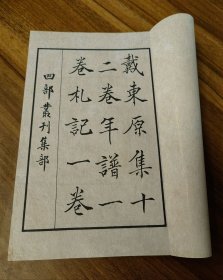 戴東原集十
二卷年譜一
卷札記一卷
四部叢刊集部